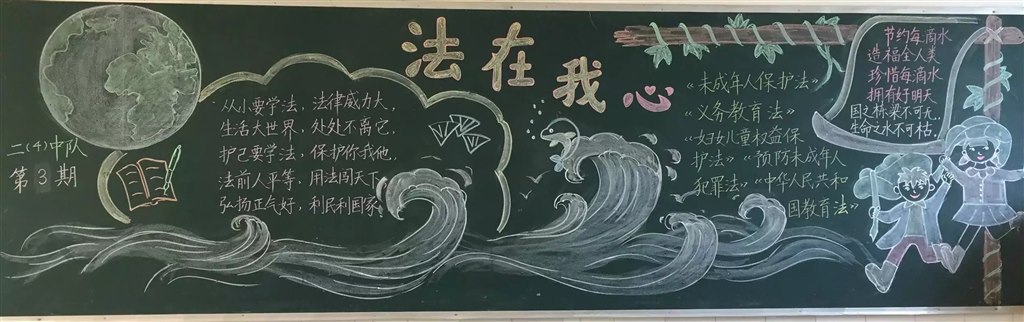 法在我心
二(4)中队
第3期
从小要学法，法律威力大，
生活大世界，处处不离它，
护己要学法，保护你我他，
法前人平等，用法闯天下，
弘扬正气好，利民利国家。
《未成年人保护法》
《义务教育法》
《妇女儿童权益保
护法》《预防未成年人
犯罪法》《中华人民共和
国教育法》
节约每滴水
造福全人类
珍惜每滴水
拥有好明天
国之栋梁不可尢，
生命之水不可枯。